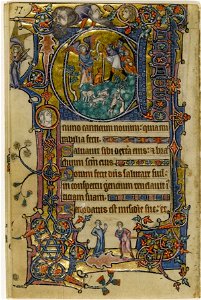 mino canticum nouum: quia mi
rabilia fecit.
Saluauit sibi dextera eius: & bra
chium scm eius
Notum fecit dns salutare suum:
in conspectu gentium reuelauit
ticiam suam
Recordatus est misericordie sue et